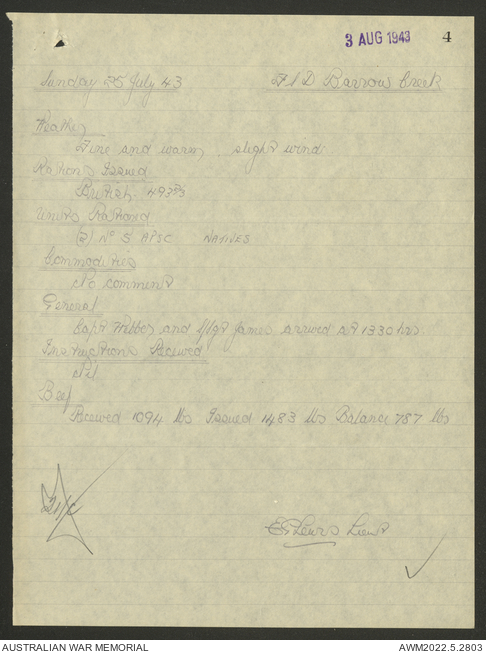 3 AUG 1943 4
Sunday 25 July 43 F S D Barrow Creek
Weather
Fine and warm, slight wind.
Rations Issued
British 493
Units Rationed
(2) No 5 APSC NATIVES
Commodities
No comment
General
Capt and S/Sgt James arrived at 1330 hrs.
Instructions Received
Nil
Beef
Received 1094 lbs Issued 1483 lbs Balance 787 lbs
Lewis Lieut
AUSTRALIAN WAR MEMORIAL AWM2022.5.2803